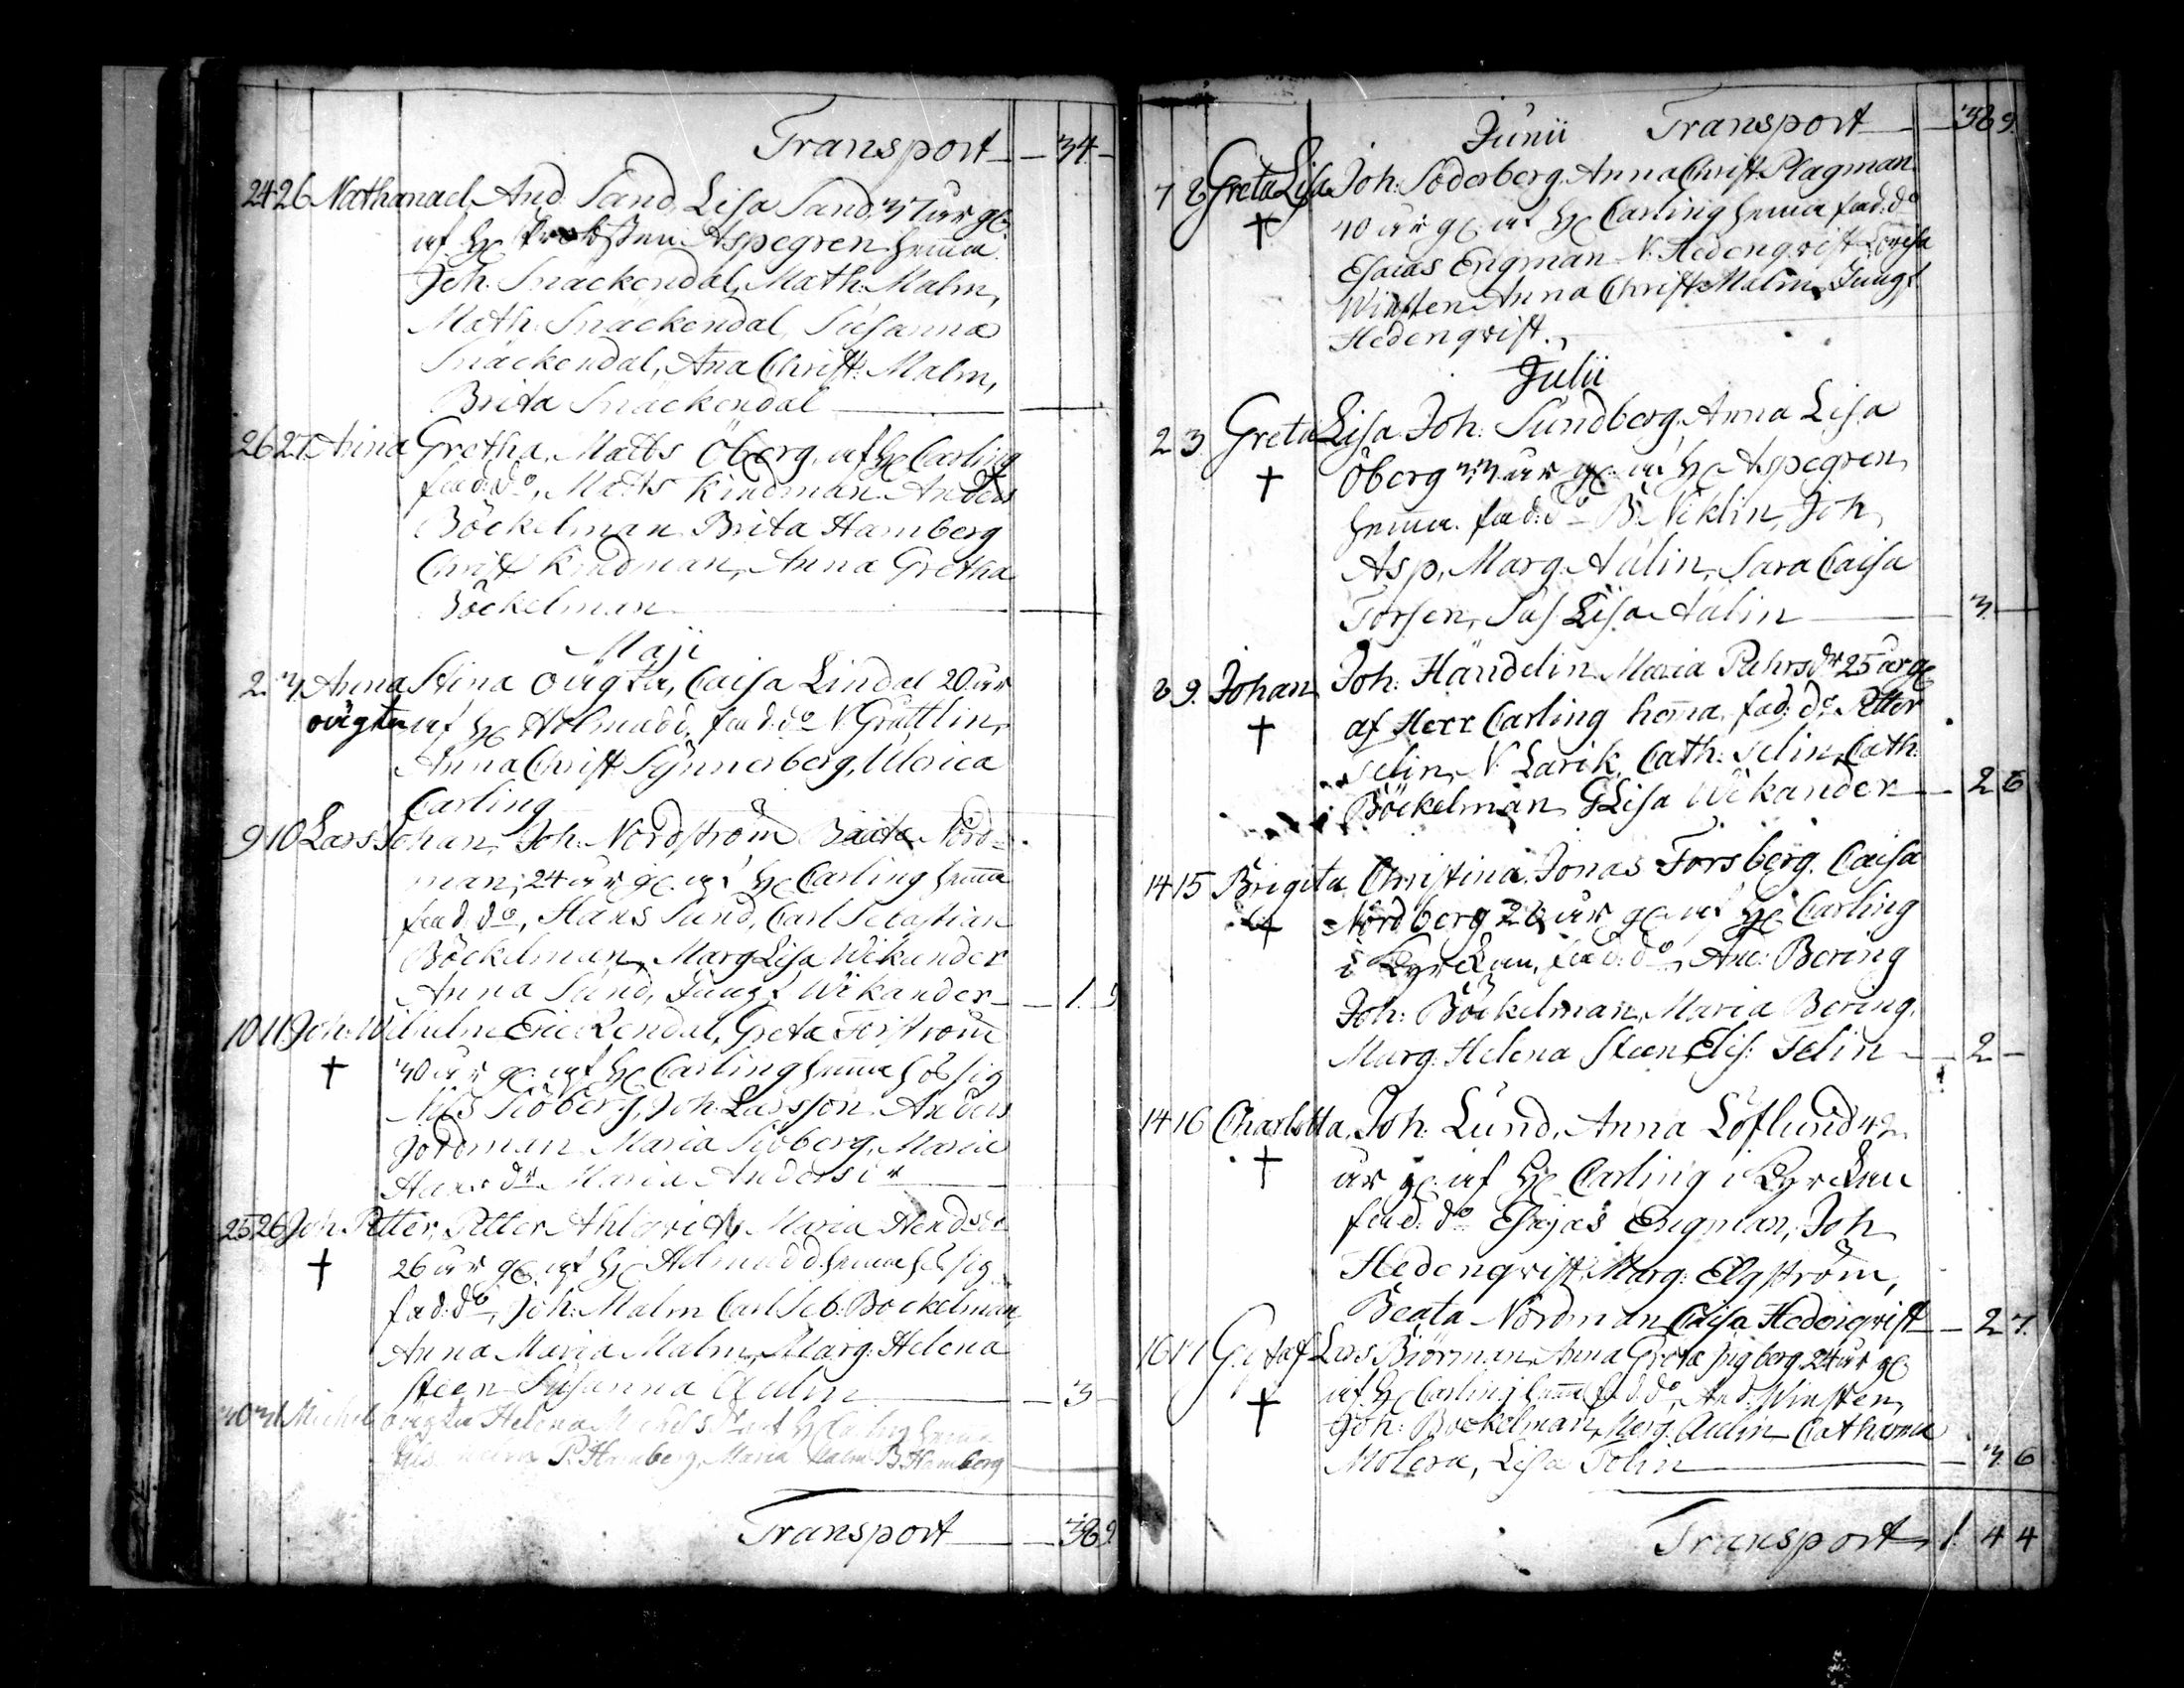 Transport — 34 —
24 26 Nathanael, And. Sand, Lisa Sand, 37 år g.
af H. Probsten Aspegren hemma
Joh. Snäckendal, Math. Malm,
Math. Snäckendal, Susanna
Snäckendal, Ana Christ: Malm,
Brita Snäckendal
26 27 Anna Gretha, Matts Öberg, af H. Carling
fad: do, Matts Kindman. Anders
Böckelman Brita Hamberg
Christ Kindman, Anna Gretha
Böckelman
Maji
2. 3. Anna Stina oägta, Caisa Lindal 20 år
oägta af H. Holmudd. fad. do N. Grattlin,
Anna Christ. Synnerberg, Ulrica
Carling
9 10 Lars Johan, Joh. Nordström Beata Nord-
man, 24 år g. af H. Carling hemma
fad. do, Hans Sund, Carl Sebastian
Böckelman, Marg Lisa Wikander
Anna Sund, Jungf. Wikander — 1. 3
10 11 Joh. Wilhelm Eric Rendal, Greta Forsström
† 40 år g. af H. Carling hemma hos sig
Nils Siöberg, Joh. Larsson. Anders
Jordman Maria Siöberg, Maria
Hansdr Maria Andersdr
25 26 Joh. Petter, Petter Ahlqvist, Maria Hendsdr
† 26 år g. af H. Holmudd hemma hos sig
fad: do, Joh: Malm Carl Seb: Böckelman,
Anna Maria Malm, Marg: Helena
Steen Susanna Aulin — 3 —
30 31 Michel oägta Helena Michelsdr af H. Carling hemma
Malm P. Hamberg, Maria Malm B. Hamberg
Transport — 38 9.
Junii Transport — 38 9.
7 8 Greta Lisa Joh: Söderberg. Anna Christ Plagman.
† 40 år g. af H. Carling hemma fad: do
Esaias Engman N. Hedenqvist Lovisa
Winsten Anna Christ Malm, Jungf.
Hedenqvist.
Julii
2 3 Greta Lisa Joh. Sundberg. Anna Lisa
† Öberg 33 år g. af H. Aspegren
hemma. fad: do B. Niklin, Joh.
Asp, Marg. Aulin, Sara Caisa
Forsen, Sus Lisa Aulin — 3. —
8 9. Johan Joh: Händelin Maria Pehrsdr 25 år g.
† af Herr Carling hemma, fad. do Petter
Selin, N Larik, Cath: Selin, Cath:
Böckelman, G Lisa Wikander — 2 6
14 15 Brigita Christina. Jonas Forsberg. Caisa
† Nordberg 28 år g. af H. Carling
i Kyrckan, fad: do, And: Bering
Joh: Böckelman, Maria Bering.
Marg: Helena Steen, Elis: Felin — 2 —
14 16 Charlotta, Joh: Lund, Anna Löflund 42
† år g. af H. Carling i Kyrckan
fad: do Esajas Engman, Joh
Hedenqvist, Marg: Elgström,
Beata Nordman Caisa Hedenqvist — 2 7.
16 17 Gustaf Lars Biörman, Anna Greta Jugberg 24 år g.
† af H. Carling hemma fad: do, And: Winsten,
Joh: Böckelman, Marg. Aulin Catharina
Molera, Lisa Tolin — 3. 6
Transport 1. 4 4